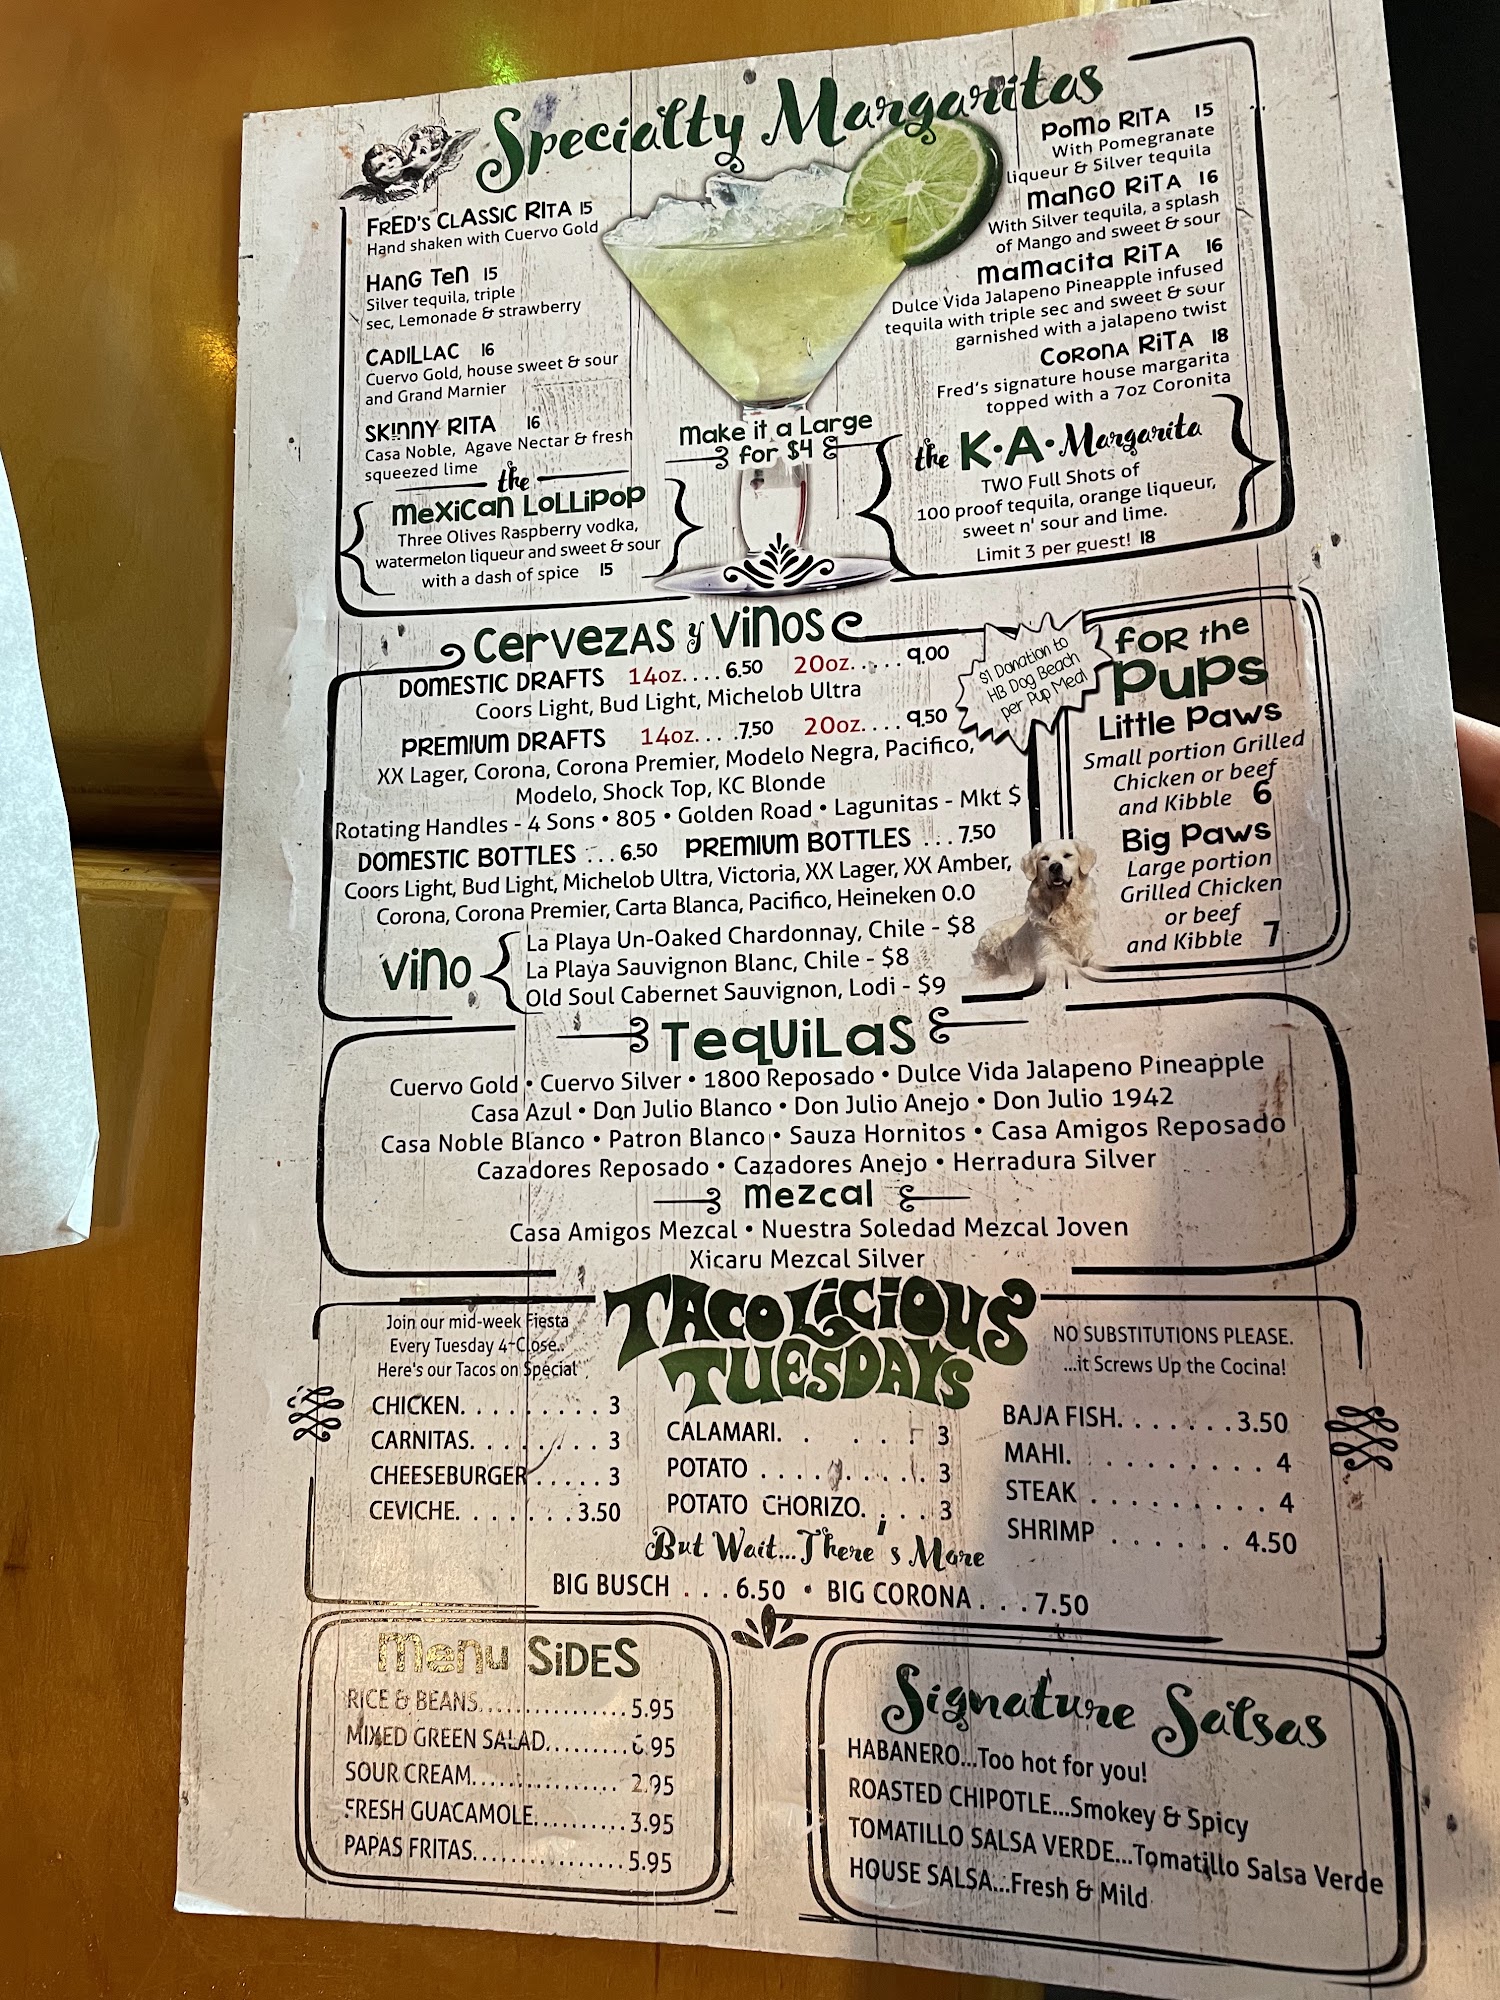 Specialty Margaritas
FRED'S CLASSIC RITA 15
Hand shaken with Cuervo Gold
HANG TEN 15
Silver tequila, triple
sec, Lemonade & strawberry
CADILLAC 16
Cuervo Gold, house sweet & sour
and Grand Marnier
SKINNY RITA 16
Casa Noble, Agave Nectar & fresh
squeezed lime
the
MEXICAN LOLLIPOP
Three Olives Raspberry vodka,
watermelon liqueur and sweet & sour
with a dash of spice 15
Make it a Large
for $4
POMO RITA 15
With Pomegranate
liqueur & Silver tequila
MANGO RITA 16
With Silver tequila, a splash
of Mango and sweet & sour
MAMACITA RITA 16
Dulce Vida Jalapeno Pineapple infused
tequila with triple sec and sweet & sour
garnished with a jalapeno twist
CORONA RITA 18
Fred's signature house margarita
topped with a 7oz Coronita
the K•A•Margarita
TWO Full Shots of
100 proof tequila, orange liqueur,
sweet n' sour and lime.
Limit 3 per guest! 18
CERVEZAS y VINOS
DOMESTIC DRAFTS 14oz....6.50 20oz.....9.00
Coors Light, Bud Light, Michelob Ultra
PREMIUM DRAFTS 14oz....7.50 20oz....9.50
XX Lager, Corona, Corona Premier, Modelo Negra, Pacifico,
Modelo, Shock Top, KC Blonde
Rotating Handles - 4 Sons • 805 • Golden Road • Lagunitas - Mkt $
DOMESTIC BOTTLES ...6.50 PREMIUM BOTTLES ...7.50
Coors Light, Bud Light, Michelob Ultra, Victoria, XX Lager, XX Amber,
Corona, Corona Premier, Carta Blanca, Pacifico, Heineken 0.0
VINO
La Playa Un-Oaked Chardonnay, Chile - $8
La Playa Sauvignon Blanc, Chile - $8
Old Soul Cabernet Sauvignon, Lodi - $9
$1 Donation to
HB Dog Beach
per Pup Meal
FOR the
PUPS
Little Paws
Small portion Grilled
Chicken or beef
and Kibble 6
Big Paws
Large portion
Grilled Chicken
or beef
and Kibble 7
TEQUILAS
Cuervo Gold • Cuervo Silver • 1800 Reposado • Dulce Vida Jalapeno Pineapple
Casa Azul • Don Julio Blanco • Don Julio Anejo • Don Julio 1942
Casa Noble Blanco • Patron Blanco • Sauza Hornitos • Casa Amigos Reposado
Cazadores Reposado • Cazadores Anejo • Herradura Silver
MEZCAL
Casa Amigos Mezcal • Nuestra Soledad Mezcal Joven
Xicaru Mezcal Silver
TACOLICIOUS
TUESDAYS
Join our mid-week Fiesta
Every Tuesday 4-Close.
Here's our Tacos on Special
NO SUBSTITUTIONS PLEASE.
...it Screws Up the Cocina!
CHICKEN......... 3
CARNITAS......... 3
CHEESEBURGER..... 3
CEVICHE.......3.50
CALAMARI. . . . . 3
POTATO.......... 3
POTATO CHORIZO.... 3
BAJA FISH.......3.50
MAHI.......... 4
STEAK......... 4
SHRIMP...... 4.50
But Wait...There's More
BIG BUSCH ...6.50 • BIG CORONA ...7.50
Menu SIDES
RICE & BEANS................5.95
MIXED GREEN SALAD.........6.95
SOUR CREAM................ 2.95
FRESH GUACAMOLE..........3.95
PAPAS FRITAS................5.95
Signature Salsas
HABANERO...Too hot for you!
ROASTED CHIPOTLE...Smokey & Spicy
TOMATILLO SALSA VERDE...Tomatillo Salsa Verde
HOUSE SALSA...Fresh & Mild